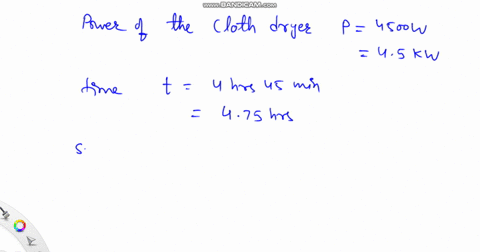 WWW.BANDICAM.COM
Power of the cloth dryer P = 4500W
= 4.5 KW
time t = 4 hrs 45 min
= 4.75 hrs
S